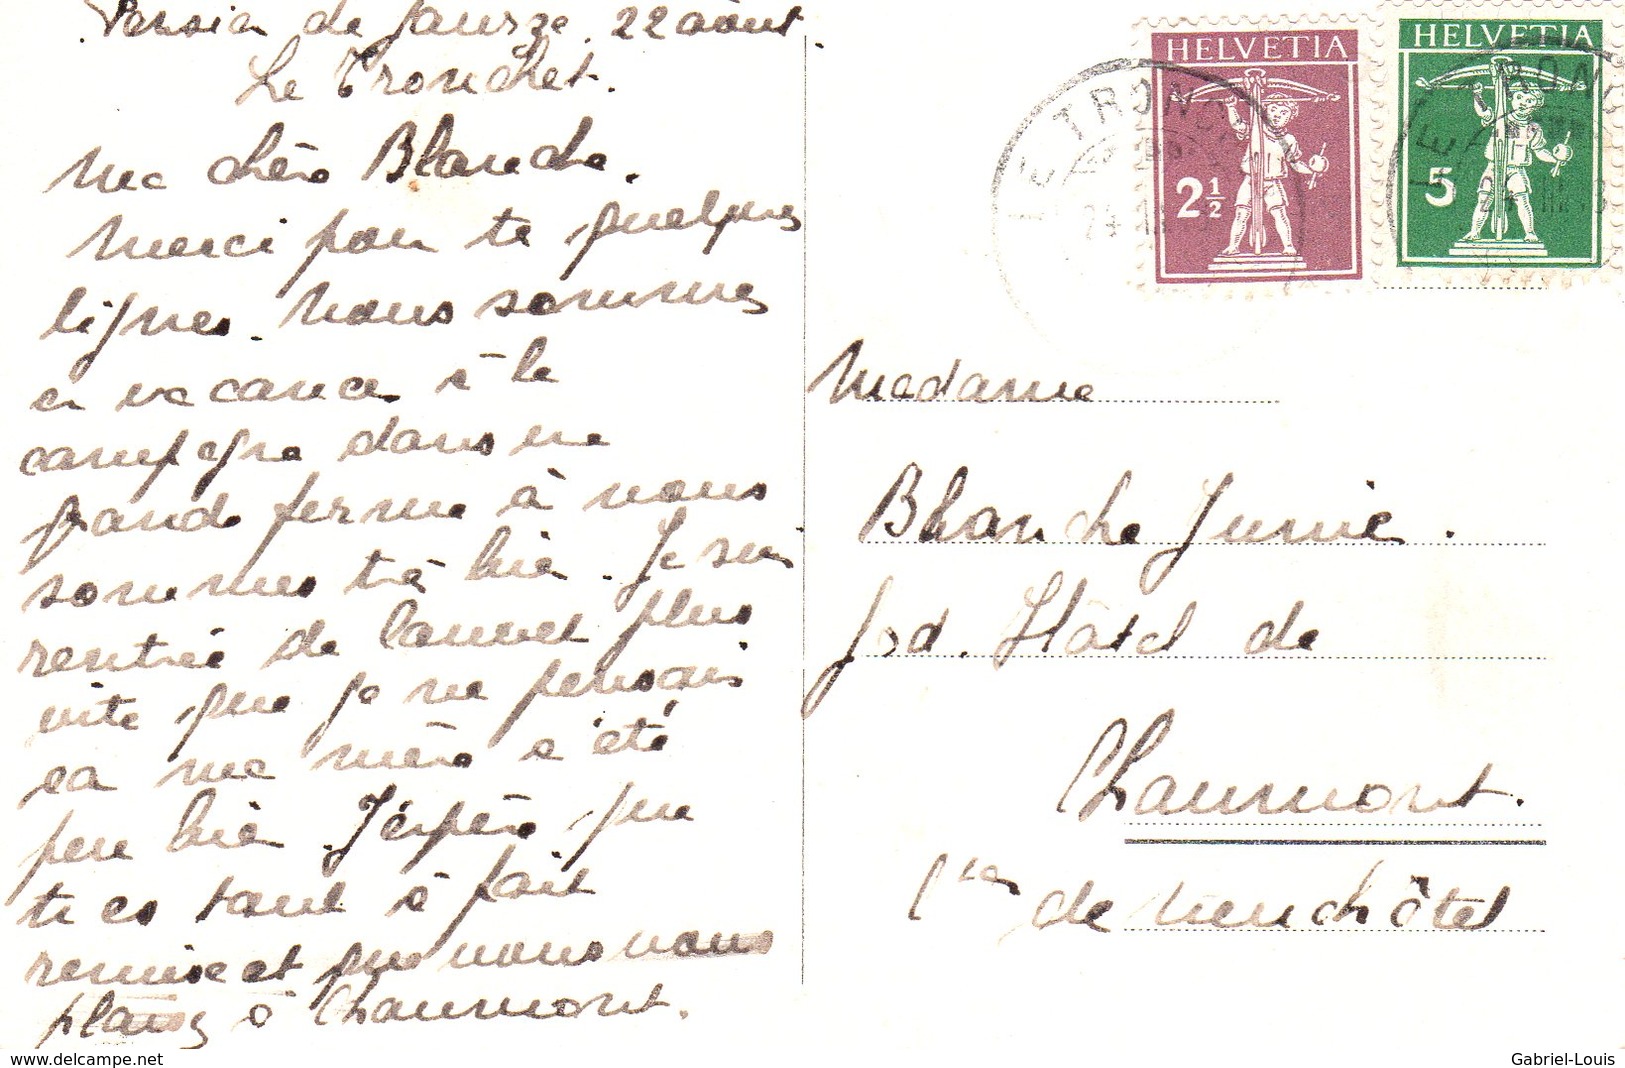 Pension de Jaurze. 22 août.
Le Tronchet.
Ma chère Blanche.
Merci pour ta quelques
lignes. Nous sommes
en vacances à la
campagne dans une
grande ferme à nous
sommes très bien. Je suis
rentrée de Cannes plus
vite que je ne pensais
ca ma mère a été
peu bien. J'espère que
tu es tout à fait
remise et que nous vous
plaisez à Chaumont.
HELVETIA
2½
HELVETIA
5
LE TRONC
LE TRON
24
Madame
Blanche Junié.
Gd. Hôtel de
Chaumont.
Ctn de Neuchâtel
www.delcampe.net
Gabriel-Louis